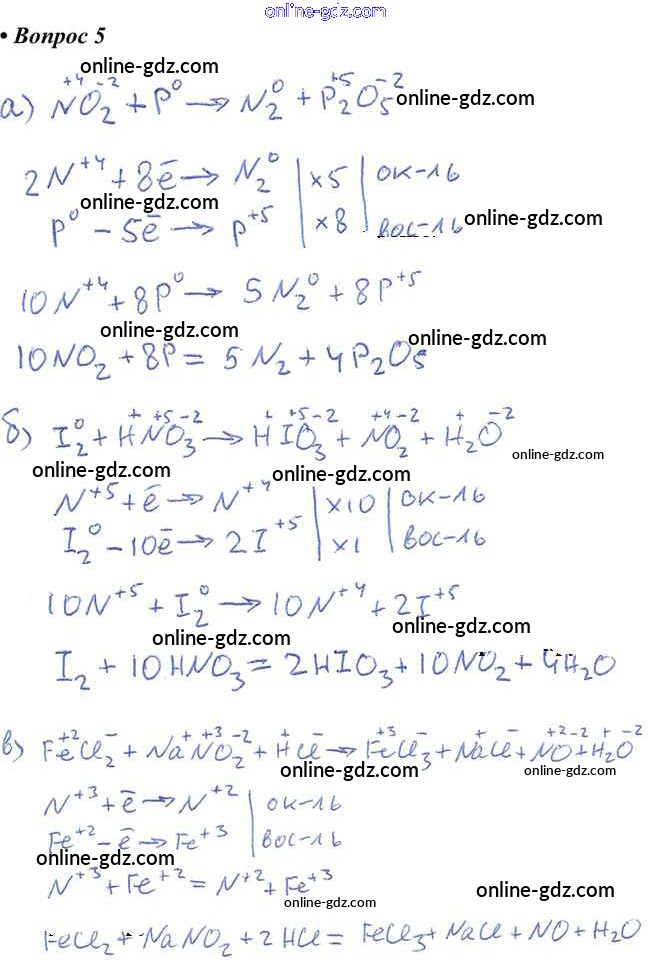 online-gdz.com
• Вопрос 5
online-gdz.com
а) N⁺⁴O₂⁻² + P⁰ → N₂⁰ + P₂⁺⁵O₅⁻² online-gdz.com
2N⁺⁴ + 8ē → N₂⁰ | ×5 | ок-ль
online-gdz.com
P⁰ − 5ē → P⁺⁵ | ×8 | вос-ль online-gdz.com
10N⁺⁴ + 8P⁰ → 5N₂⁰ + 8P⁺⁵
online-gdz.com online-gdz.com
10NO₂ + 8P = 5N₂ + 4P₂O₅
б) I₂⁰ + H⁺N⁺⁵O₃⁻² → H⁺I⁺⁵O₃⁻² + N⁺⁴O₂⁻² + H₂⁺O⁻²
online-gdz.com online-gdz.com online-gdz.com
N⁺⁵ + ē → N⁺⁴ | ×10 | ок-ль
I₂⁰ − 10ē → 2I⁺⁵ | ×1 | вос-ль
10N⁺⁵ + I₂⁰ → 10N⁺⁴ + 2I⁺⁵
online-gdz.com online-gdz.com
I₂ + 10HNO₃ = 2HIO₃ + 10NO₂ + 4H₂O
в) Fe⁺²Cl₂⁻ + Na⁺N⁺³O₂⁻² + H⁺Cl⁻ → Fe⁺³Cl₃⁻ + Na⁺Cl⁻ + N⁺²O⁻² + H₂⁺O⁻²
online-gdz.com online-gdz.com
N⁺³ + ē → N⁺² | ок-ль
Fe⁺² − ē → Fe⁺³ | вос-ль
online-gdz.com
N⁺³ + Fe⁺² = N⁺² + Fe⁺³
online-gdz.com online-gdz.com
FeCl₂ + NaNO₂ + 2HCl = FeCl₃ + NaCl + NO + H₂O